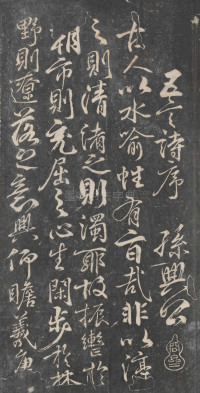 五言詩序 孫興公
古人以水喻性有旨哉非以渟
之則清淆之則濁耶故振轡於
朝市則充屈之心生閑步於林
野則遼落之意興仰瞻羲唐